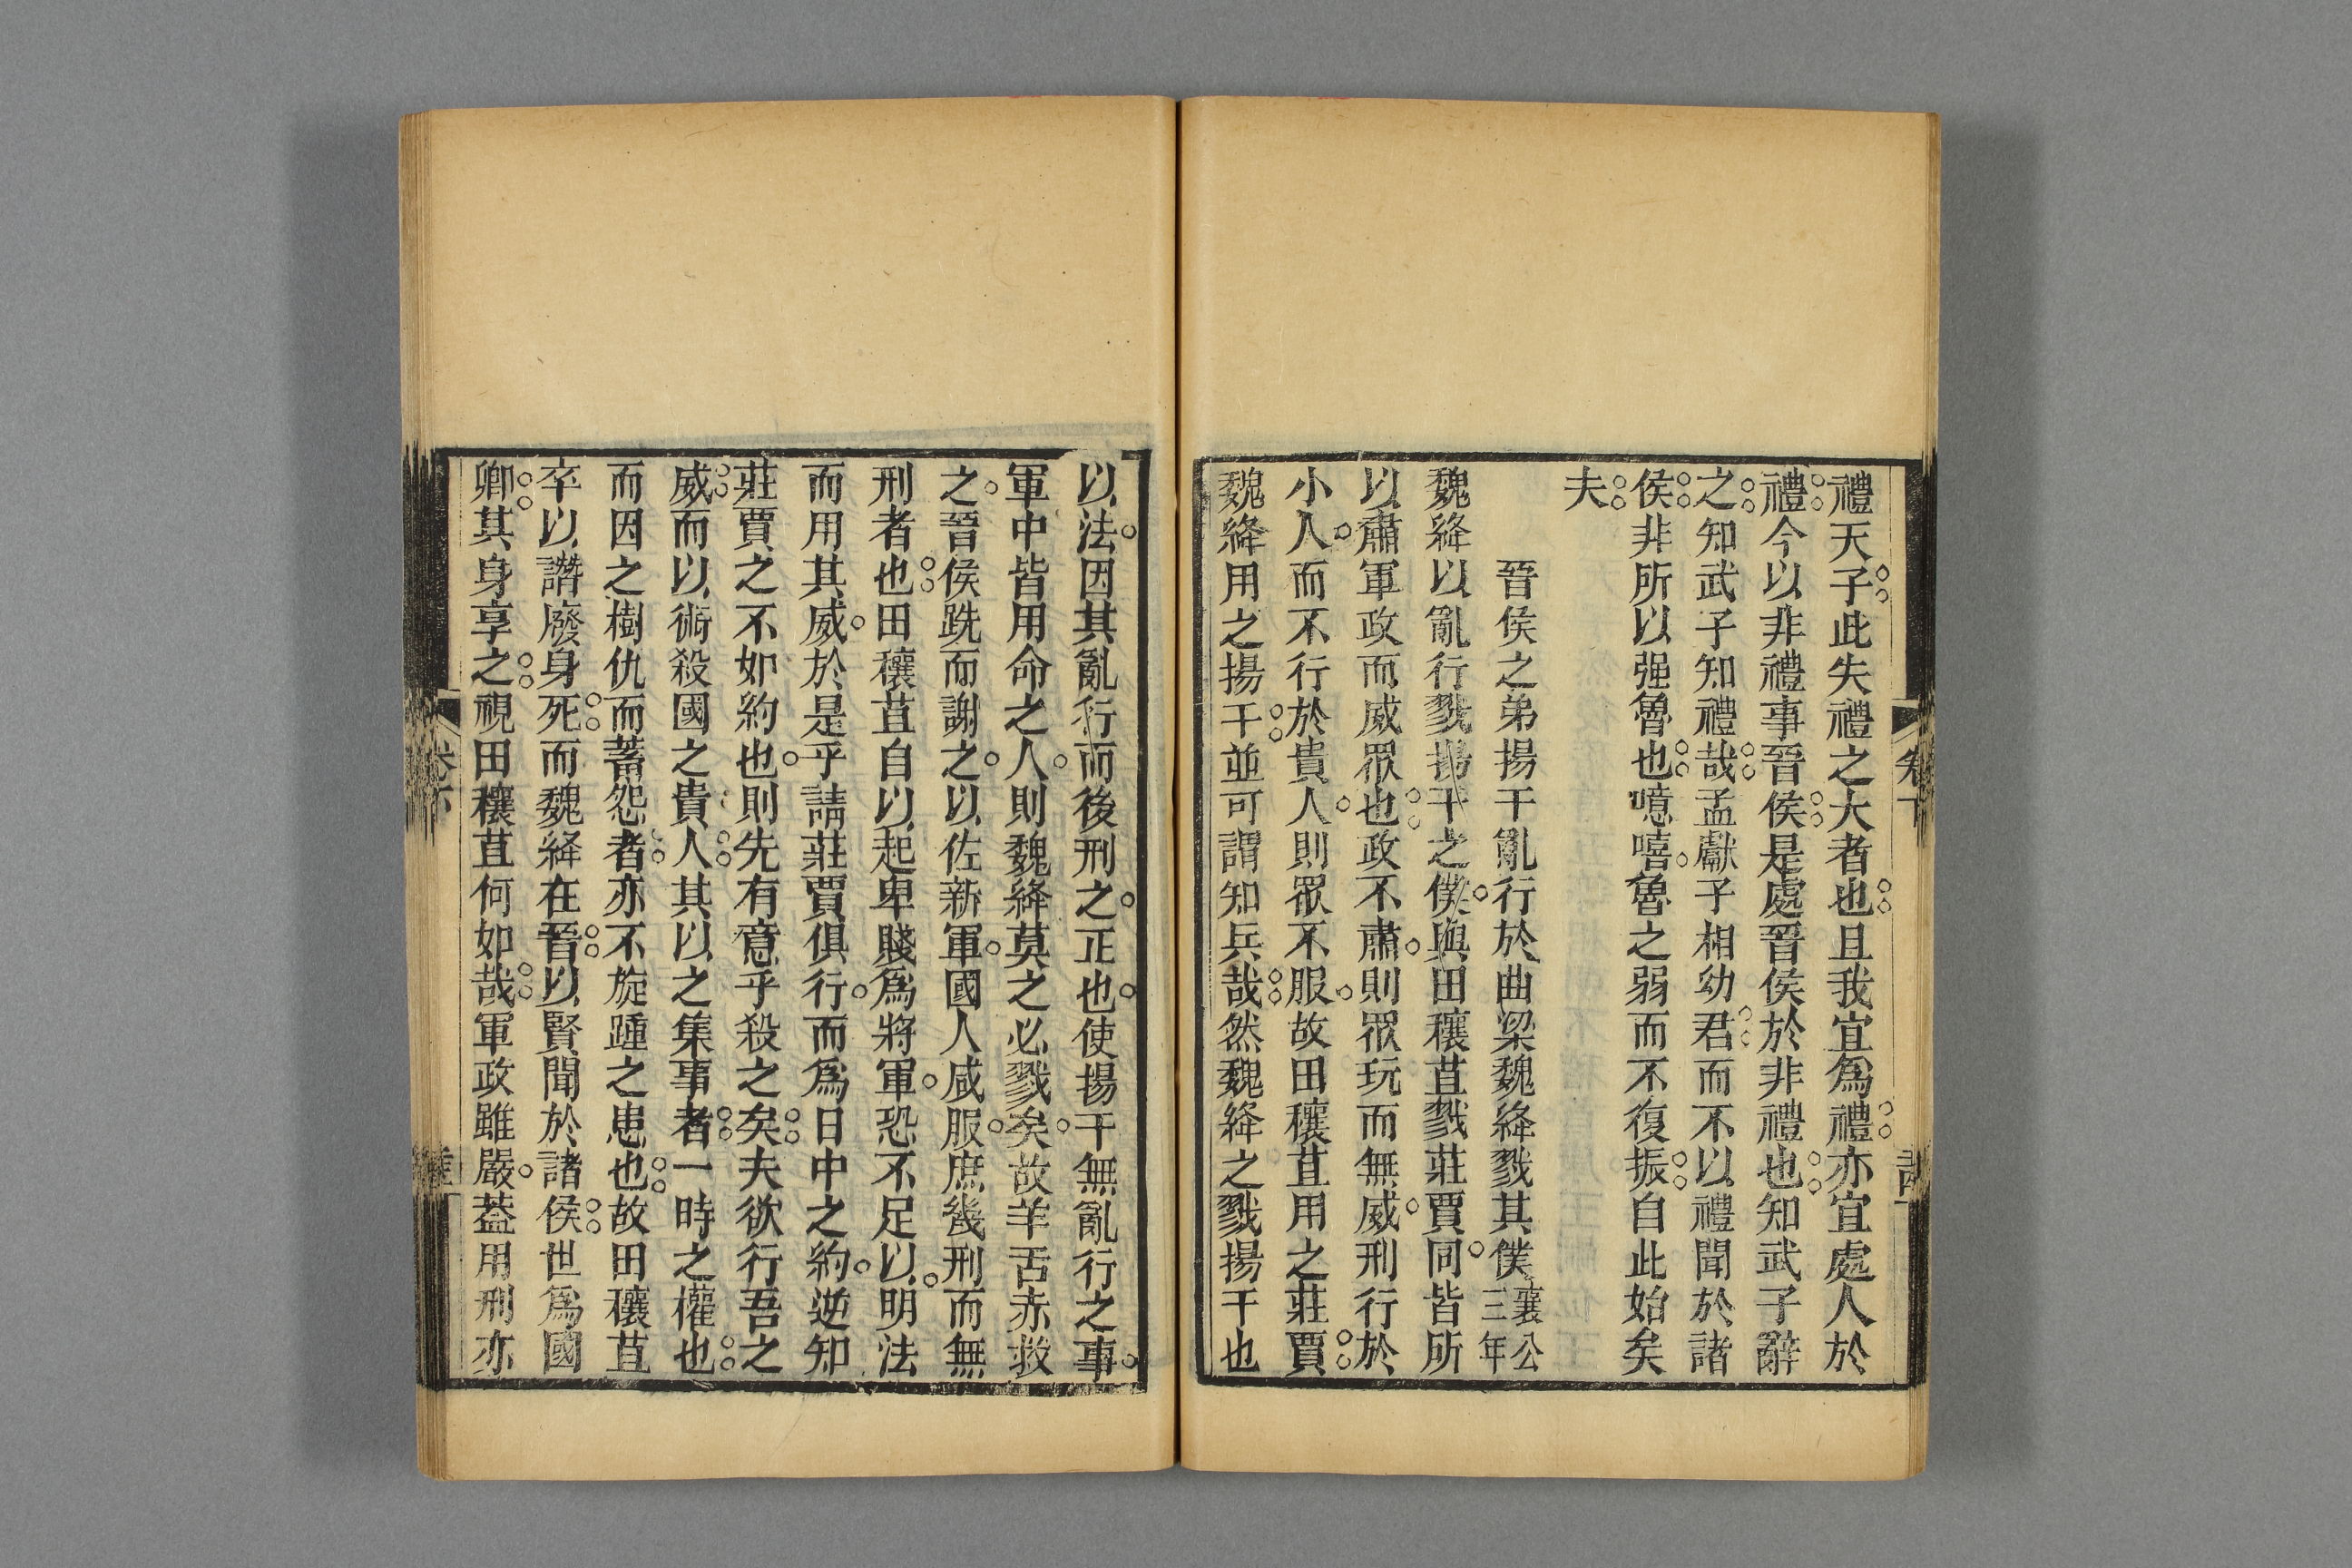 禮天子此失禮之大者也且我宜爲禮亦宜處人於
禮今以非禮事晉侯是處晉侯於非禮也知武子辭
之知武子知禮哉孟獻子相幼君而不以禮聞於諸
侯非所以强魯也噫嘻魯之弱而不復振自此始矣
夫
晉侯之弟揚干亂行於曲梁魏絳戮其僕襄公三年
魏絳以亂行戮揚干之僕與田穰苴戮莊賈同皆所
以肅軍政而威眾也政不肅則眾玩而無威刑行於
小人而不行於貴人則眾不服故田穰苴用之莊賈
魏絳用之揚干並可謂知兵哉然魏絳之戮揚干也
以法因其亂行而後刑之正也使揚干無亂行之事
軍中皆用命之人則魏絳莫之必戮矣故羊舌赤救
之晉侯跣而謝之以佐新軍國人咸服庶幾刑而無
刑者也田穰苴自以起卑賤爲將軍恐不足以明法
而用其威於是乎請莊賈俱行而爲日中之約逆知
莊賈之不如約也則先有意乎殺之矣夫欲行吾之
威而以術殺國之貴人其以之集事者一時之權也
而因之樹仇而蓄怨者亦不旋踵之患也故田穰苴
卒以譖廢身死而魏絳在晉以賢聞於諸侯世爲國
卿其身享之視田穰苴何如哉軍政雖嚴蓋用刑亦
卷下